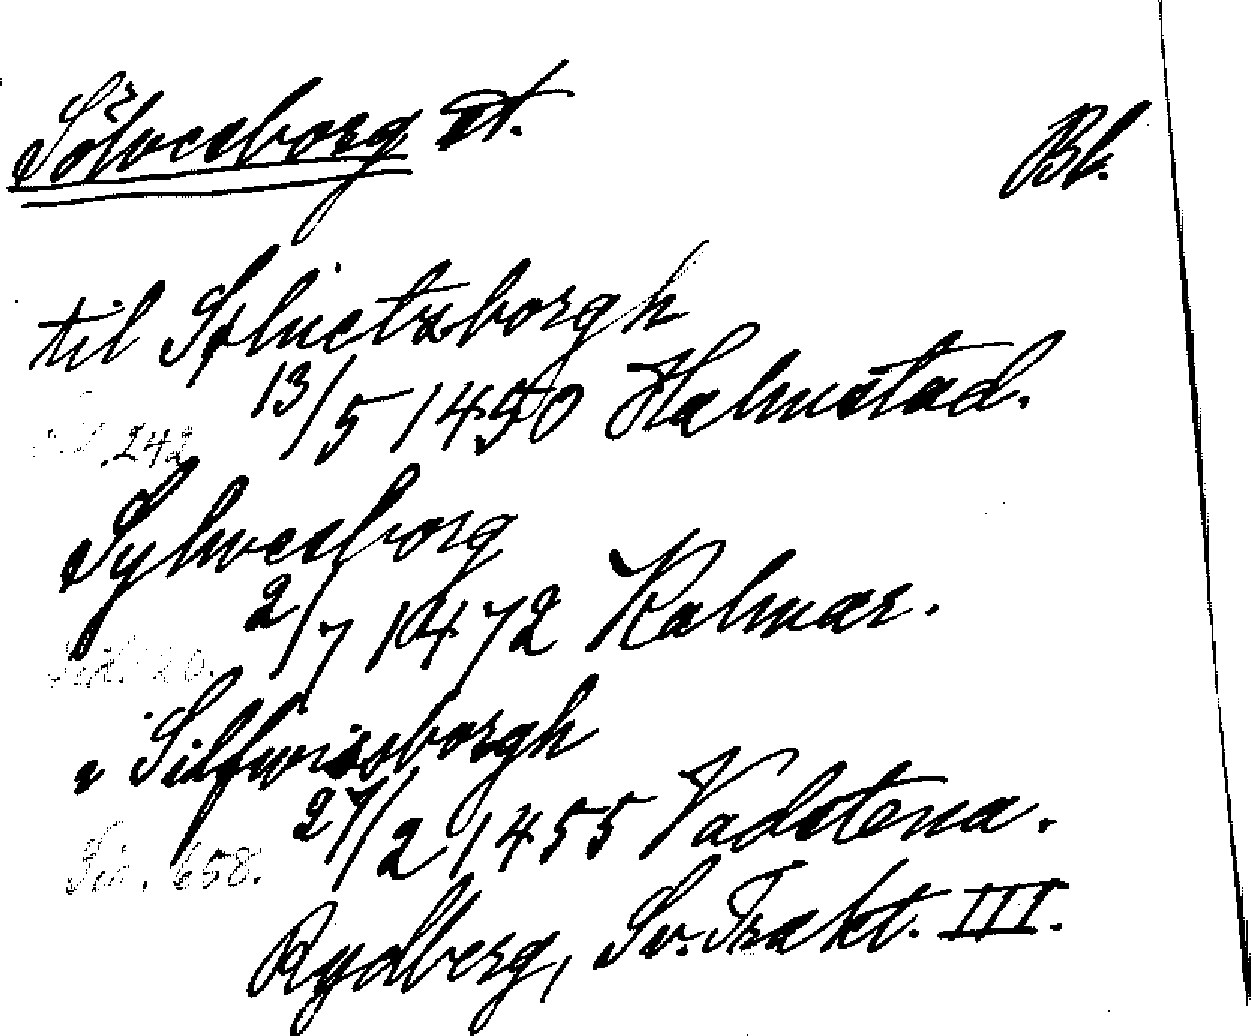 Sölvesborg st. Bl.
til Søluetzborgh
13/5 1450 Halmstad.
242
Sylwesborg
2/7 1472 Kalmar.
20.
i Silfwissborgh
27/2 1455 Vadstena.
658.
Rydberg, Sv. Trakt. III.